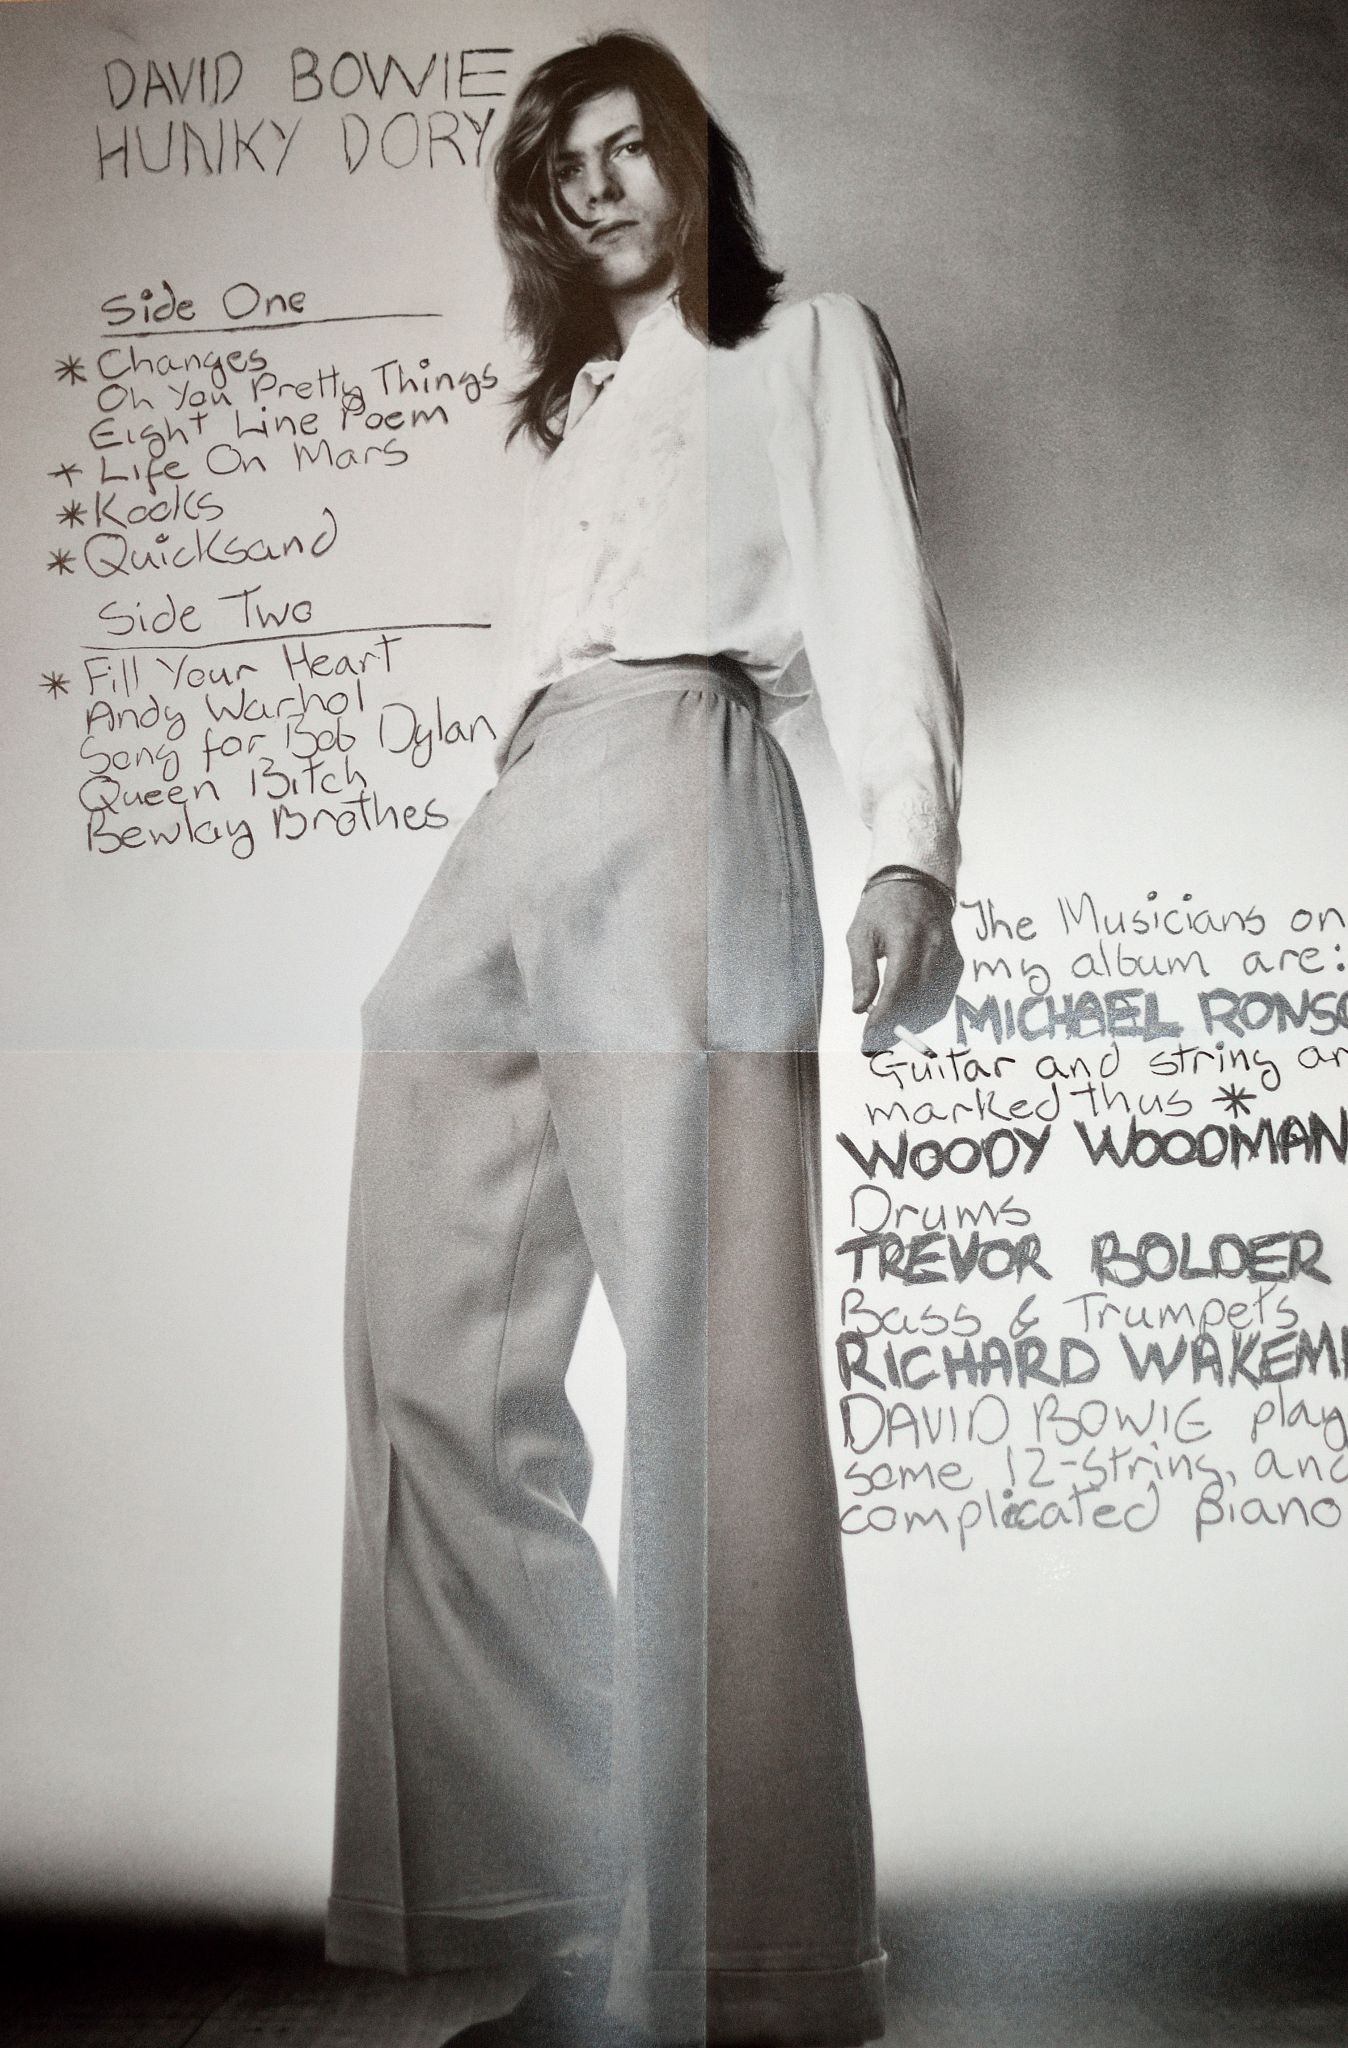 DAVID BOWIE
HUNKY DORY
Side One
* Changes
Oh You Pretty Things
Eight Line Poem
* Life On Mars
* Kooks
* Quicksand
Side Two
* Fill Your Heart
Andy Warhol
Song for Bob Dylan
Queen Bitch
Bewlay Brothes
The Musicians on
my album are:
MICHAEL RONSO
Guitar and string ar
marked thus *
WOODY WOODMAN
Drums
TREVOR BOLDER
Bass & Trumpets
RICHARD WAKEM
DAVID BOWIE play
some 12-string, and
complicated piano